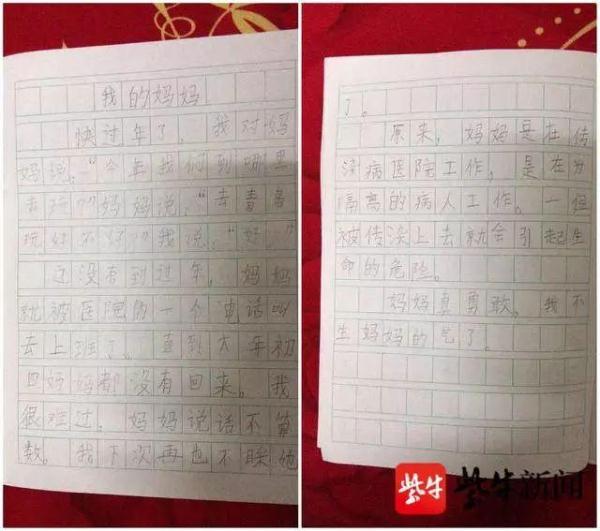 我的妈妈
快过年了，我对妈
妈说：“今年我们到哪里
去玩？”妈妈说：“去青岛
玩，好不好？”我说：“好。”
还没有到过年，妈妈
就被医院的一个电话叫
去上班了。直到大年初
四妈妈都没有回来。我
很难过，妈妈说话不算
数。我下次再也不睬她
了。
原来，妈妈是在传
染病医院工作，是在为
隔离的病人工作。一但
被传染上去就会引起生
命的危险。
妈妈真勇敢，我不
生妈妈的气了。
紫牛新闻